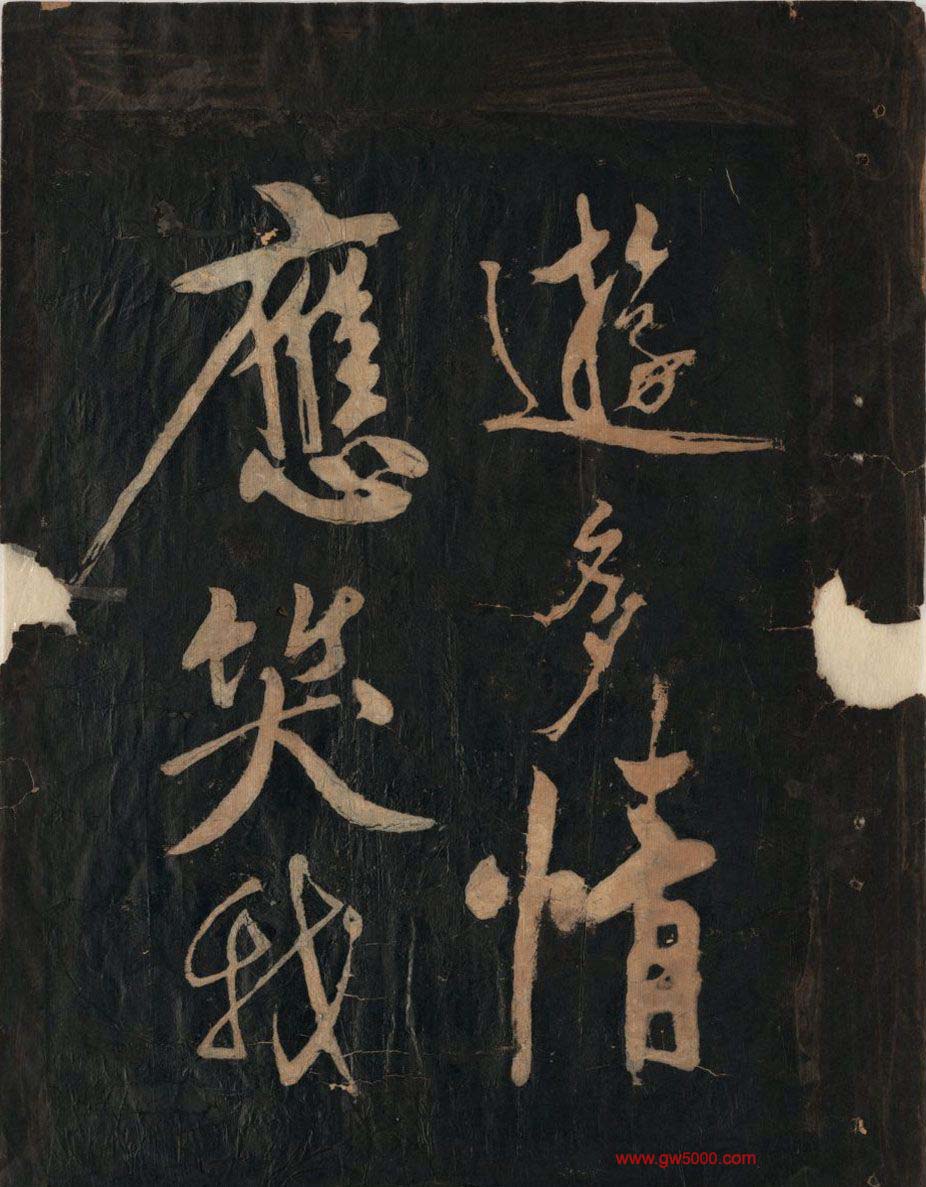 遊多情
應笑我
www.gw5000.com